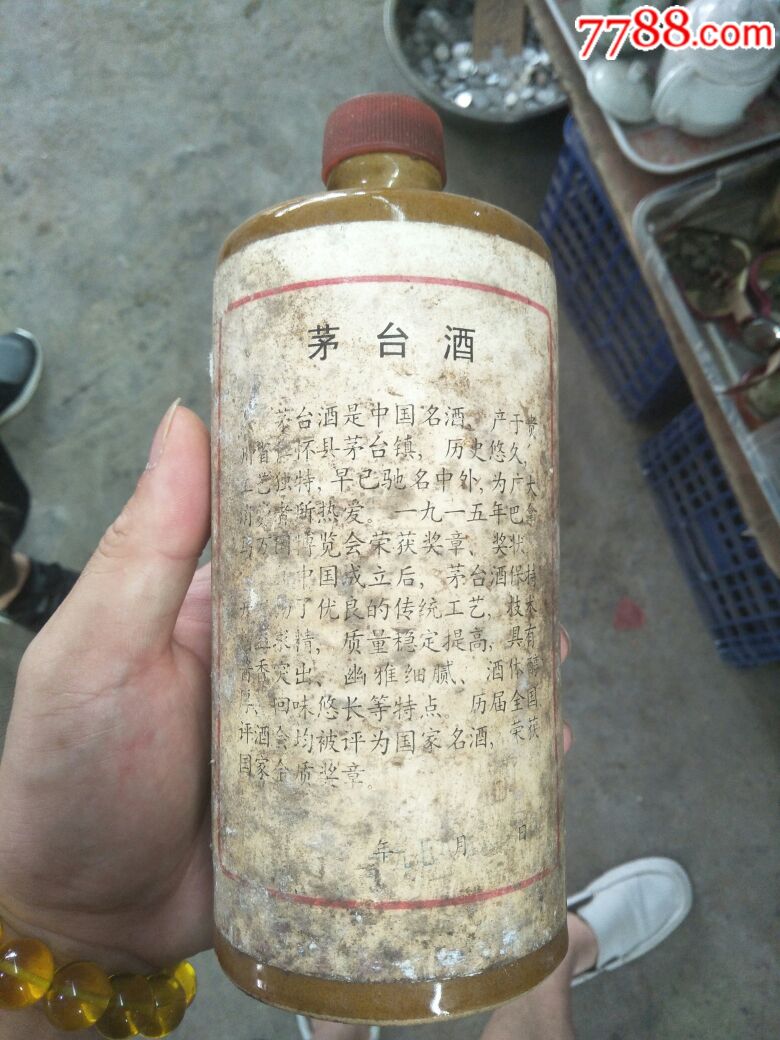 7788.com
茅台酒
茅台酒是中国名酒，产于贵
州省仁怀县茅台镇，历史悠久，
工艺独特，早已驰名中外，为广大
消费者所热爱。一九一五年巴拿
马万国博览会荣获奖章、奖状。
中国成立后，茅台酒保持
了优良的传统工艺，技术
精，质量稳定提高，具有
突出、幽雅细腻、酒体醇
厚、回味悠长等特点。历届全国
评酒会均被评为国家名酒，荣获
国家金质奖章。
年 月 日